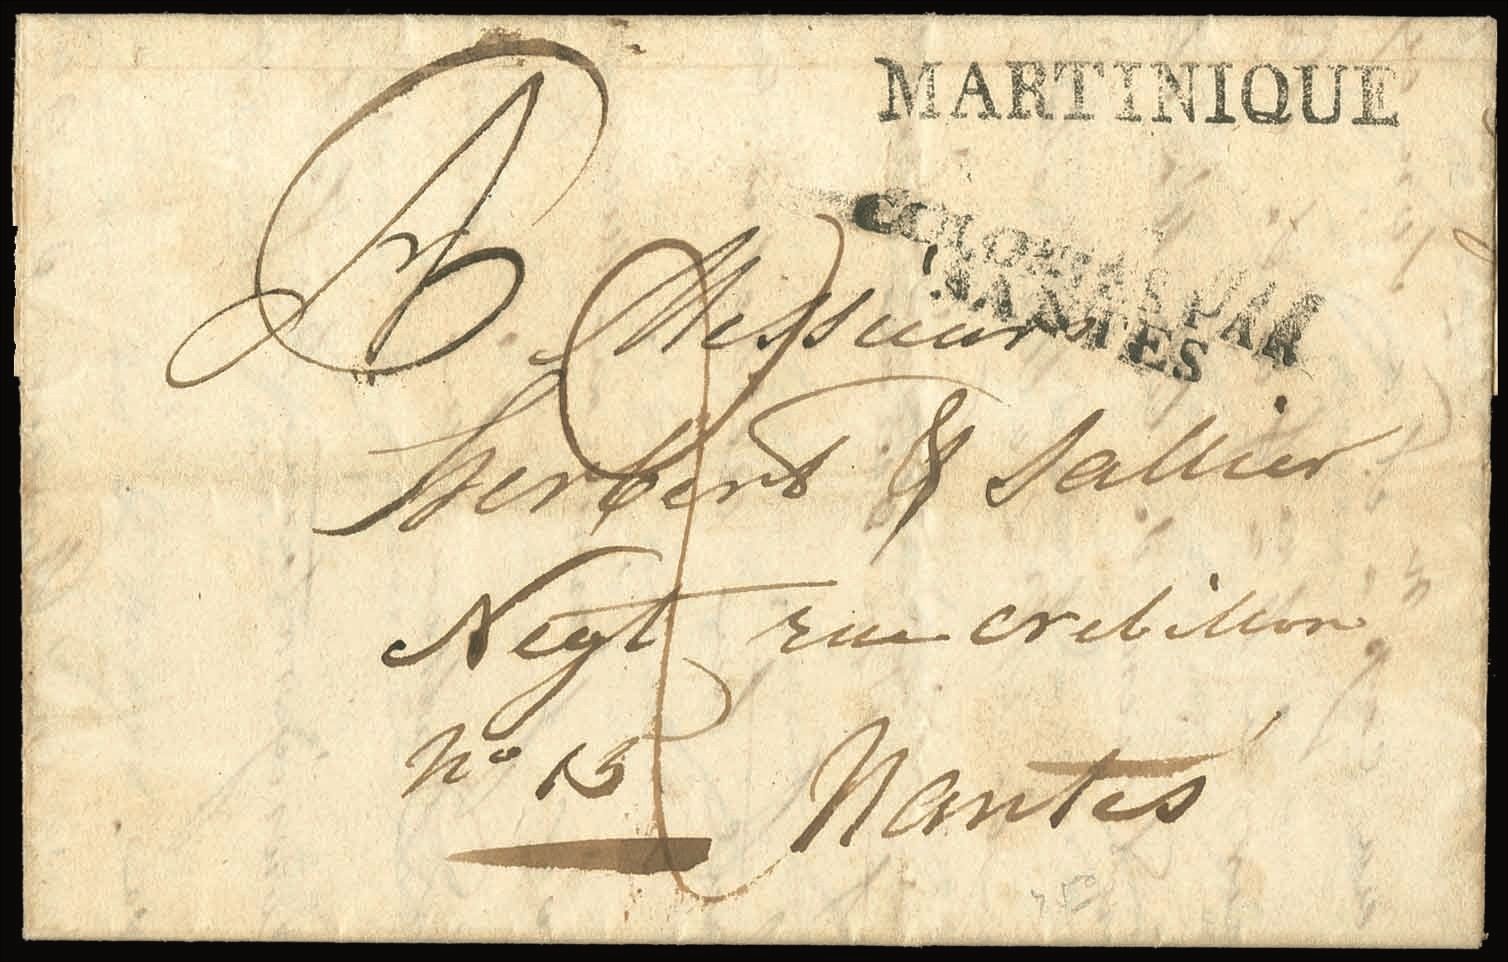 MARTINIQUE
COLONIES PAR
NANTES
A
Messieurs
herbert & Sallier
Negt rue crebillon
no 13
Nantes